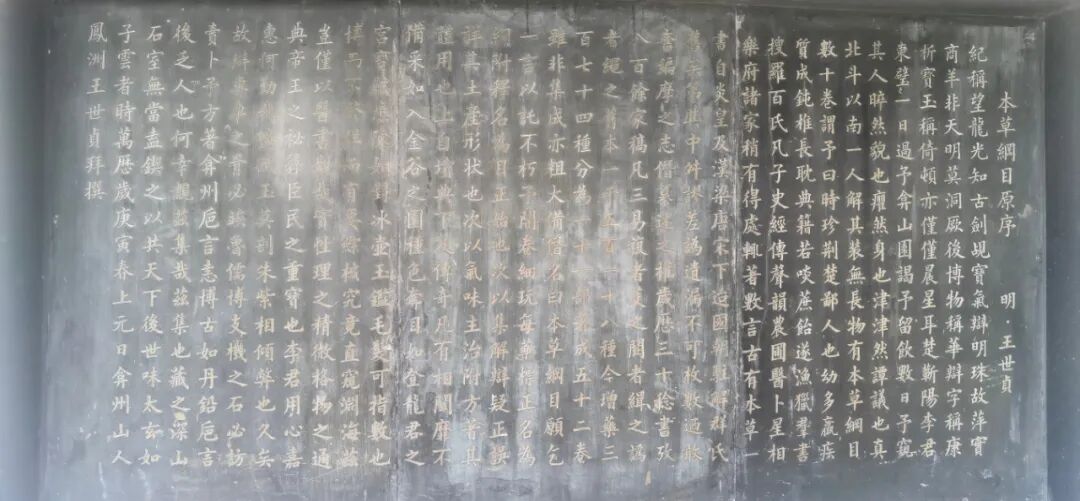 本草綱目原序　明　王世貞
紀稱望龍光知古劍覘寶氣辯明珠故萍實
商羊非天明莫洞厥後博物稱華辯字稱康
析寶玉稱倚頓亦僅僅晨星耳楚蘄陽李君
東璧一日過予弇山園謁予留飲數日予窺
其人睟然貌也癯然身也津津然譚議也真
北斗以南一人解其裝無長物有本草綱目
數十卷謂予曰時珍荆楚鄙人也幼多羸疾
質成鈍椎長耽典籍若啖蔗飴遂漁獵羣書
搜羅百氏凡子史經傳聲韻農圃醫卜星相
樂府諸家稍有得處輒著數言古有本草一
書自炎皇及漢梁唐宋下迨國朝註解群氏
舊矣第其中舛謬差譌遺漏不可枚數迺敢
奮編摩之志僭纂述之權歲歷三十稔書攷
八百餘家稿凡三易複者芟之闕者緝之譌
者繩之舊本一千五百一十八種今增藥三
百七十四種分為一十六部著成五十二卷
雖非集成亦粗大備僭名曰本草綱目願乞
一言以託不朽予開卷細玩每藥標正名為
綱附釋名為目正始也次以集解辯疑正誤
詳其土產形狀也次以氣味主治附方著其
體用也上自墳典下及傳奇凡有相關靡不
備采如入金谷之園種色奪目如登龍君之
宮寶藏悉陳如對冰壺玉鑑毛髮可指數也
博而不繁詳而有要綜核究竟直窺淵海茲
豈僅以醫書覯哉實性理之精微格物之通
典帝王之秘籙臣民之重寶也李君用心嘉
惠何勤哉噫碔玉莫剖朱紫相傾弊也久矣
故辯專車之骨必竢魯儒博支機之石必訪
賣卜予方著弇州巵言恚博古如丹鉛巵言
後乏人也何幸覩茲集哉茲集也藏之深山
石室無當盍鍥之以共天下後世味太玄如
子雲者時萬曆歲庚寅春上元日弇州山人
鳳洲王世貞拜撰